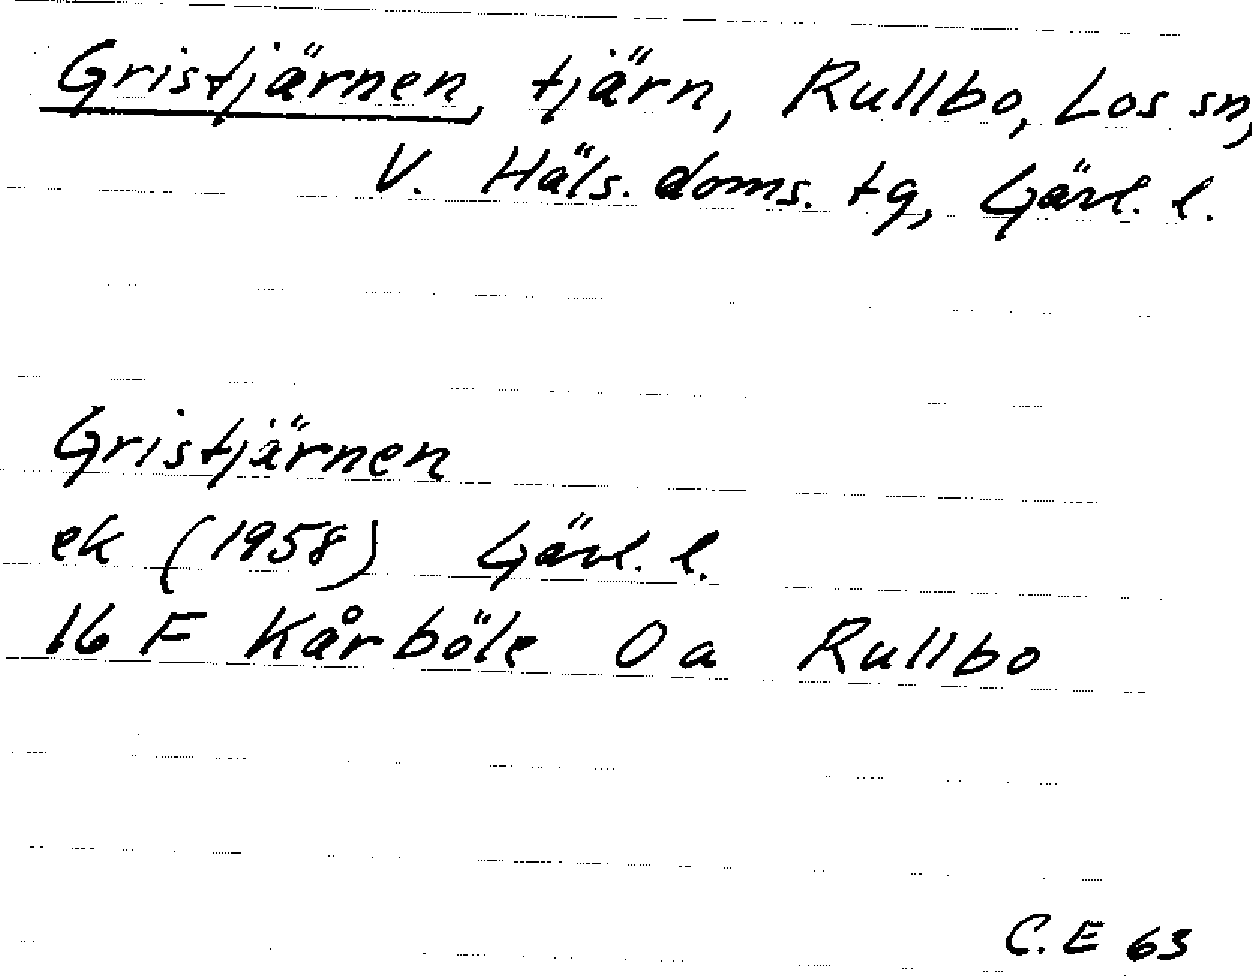 Gristjärnen, tjärn, Rullbo, Los sn,
V. Häls. doms. tg, Gävl. l.
Gristjärnen
ek (1958) Gävl. l.
16 F Kårböle 0 a Rullbo
C. E 63